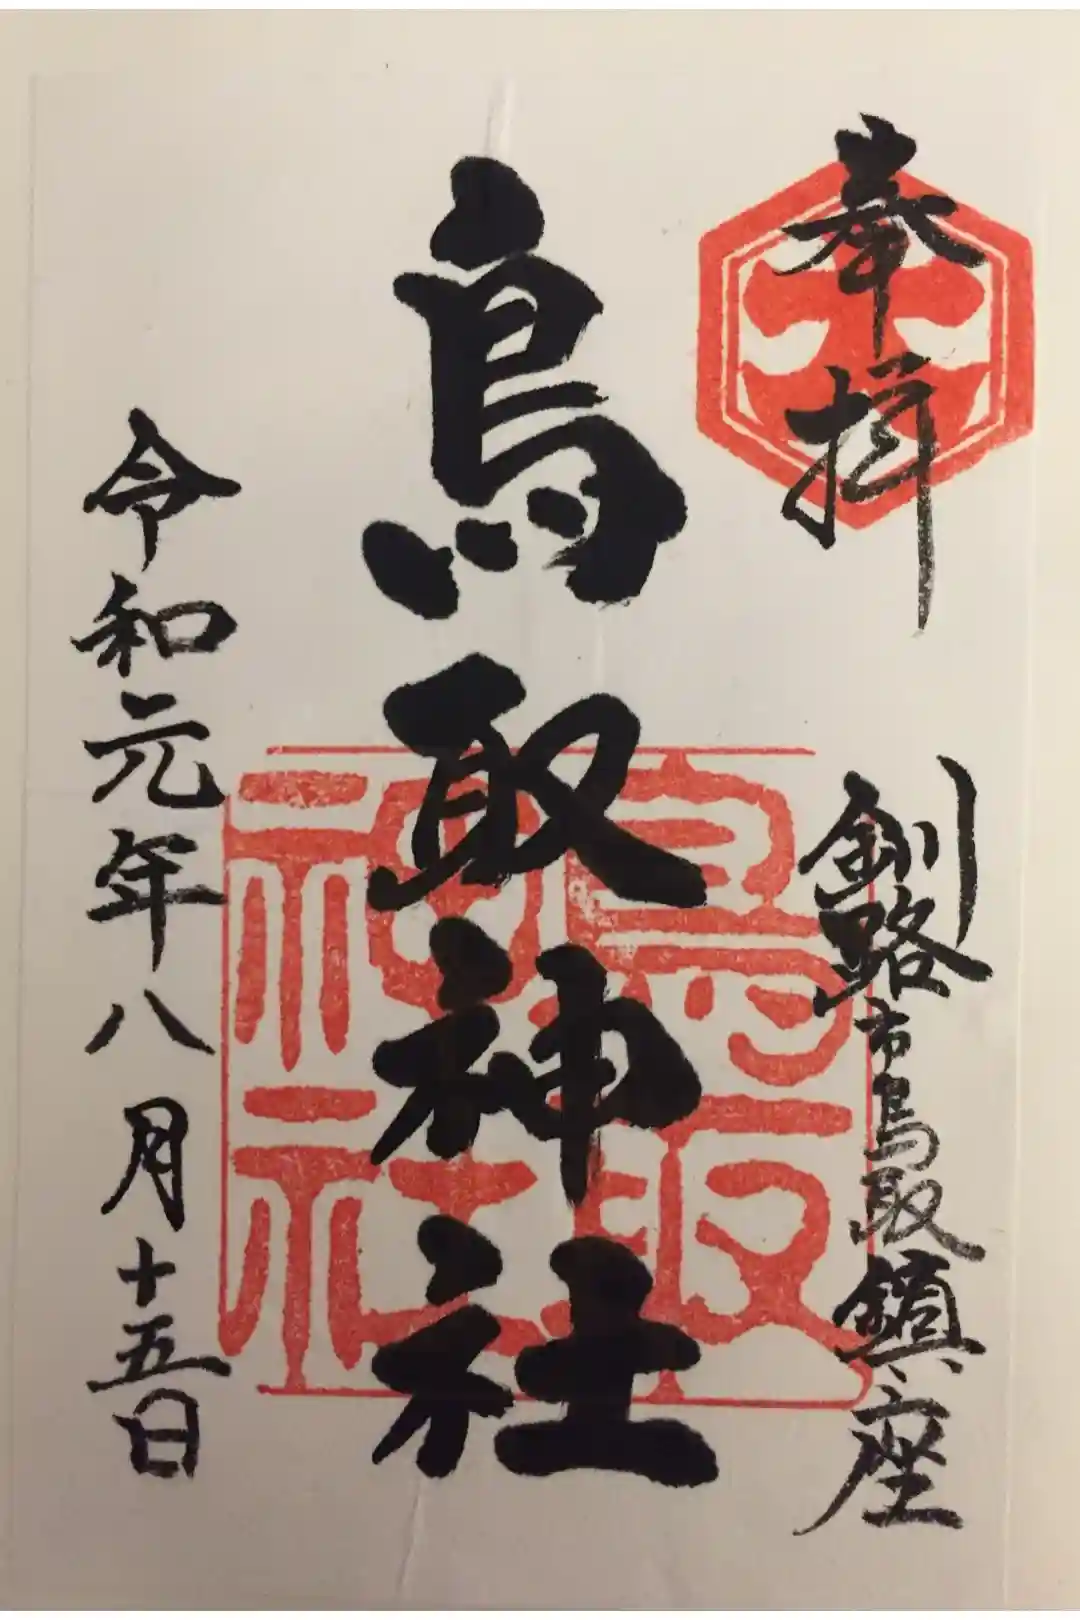 奉拝
釧路市鳥取鎮座
鳥取神社
鳥取神社
令和元年八月十五日